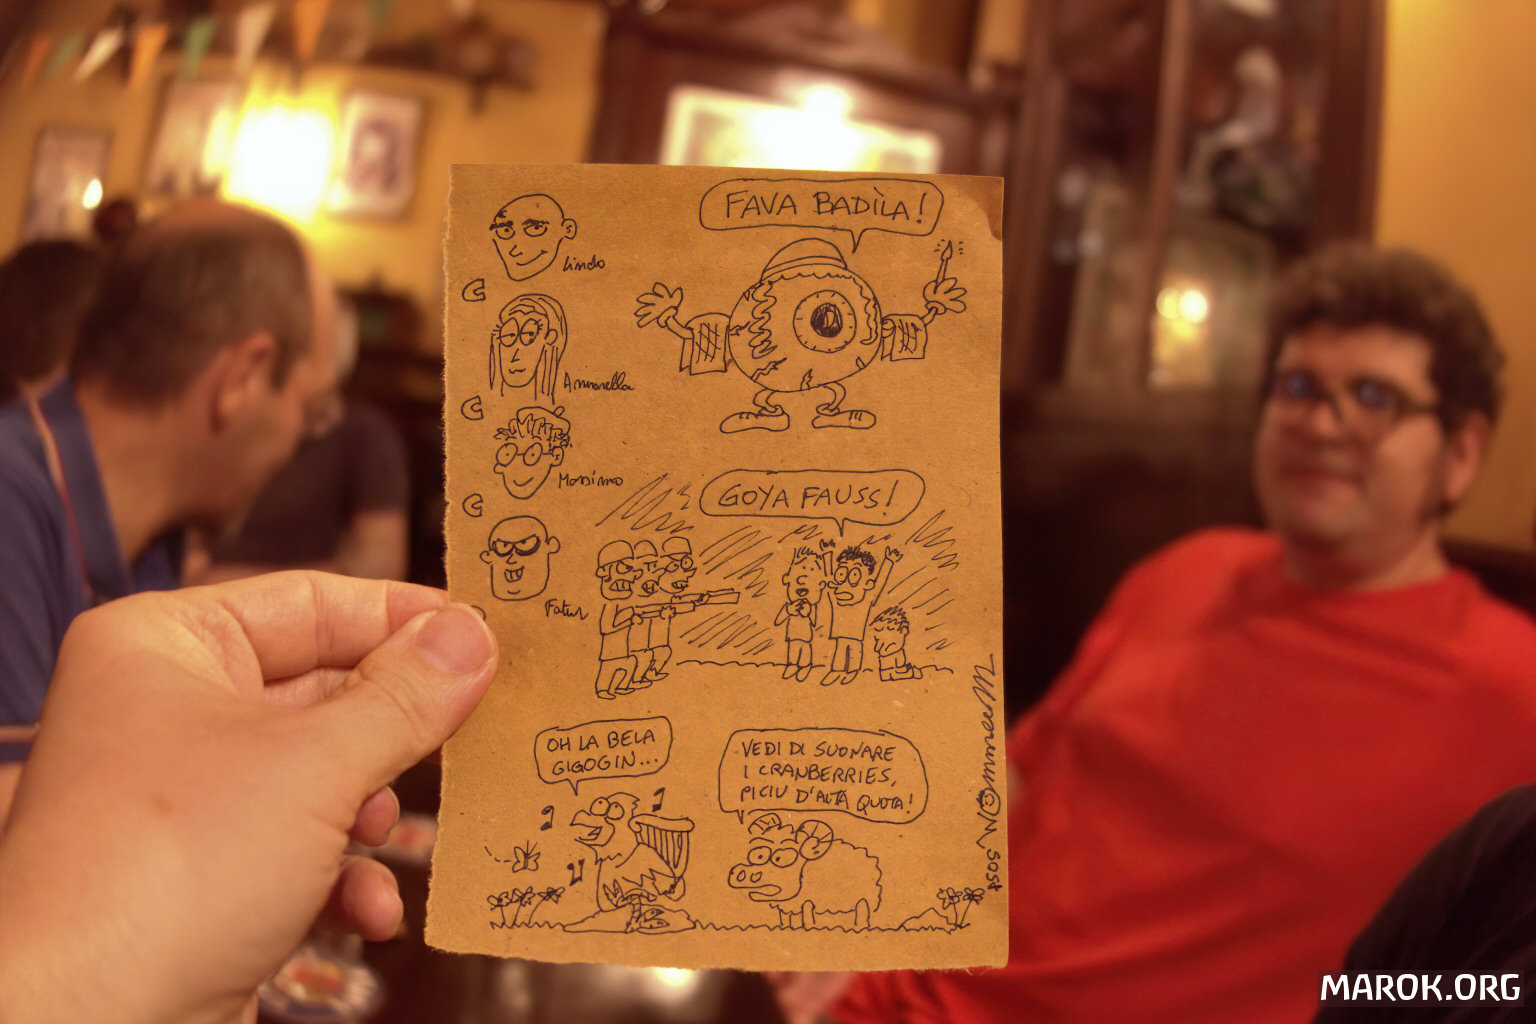 FAVA BADÌLA!
Lindo
C
Antonella
C
Massimo
C
GOYA FAUSS!
Fatur
OH LA BELA
GIGOGIN...
VEDI DI SUONARE
I CRANBERRIES,
PICIU D'ALTA QUOTA!
MAROK.ORG